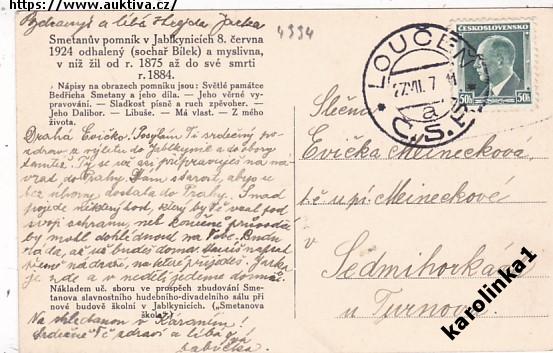 https://www.auktiva.cz/
Pozdravuje a líbá Jarka
4334
Smetanův pomník v Jabkynicích 8. června
1924 odhalený (sochař Bílek) a myslivna,
v níž žil od r. 1875 až do své smrti
r. 1884.
Nápisy na obrazech pomníku jsou: Světlé památce
Bedřicha Smetany a jeho díla. — Jeho věrné vy-
pravování. — Sladkost písně a ruch zpěvoher. —
Jeho Dalibor. — Libuše. — Má vlast. — Z mého
života.
Drahá Evičko! Posylám Ti srdečný po-
zdrav z výletu do Jabkynic a do obory
tamtéž. Ty se již asi připravuješ na ná-
vrat do Prahy. Dám starost, abys se
bez úhony dostala do Prahy. Snad
pojede někdo, který by Tě vzal pod
svoji ochranu, neb konečně průvodčí
by mohl dohlédnout na Tebe. Budu
ráda, až už budeš doma.
nádraží, na které přijedeš. Jarka
je zde a v neděli jedeme domů.
Nákladem uč. sboru ve prospěch zbudování Sme-
tanova slavnostního hudebního-divadelního sálu při
nové budově školní v Jabkynicích. („Smetanova
škola“.)
Na shledanou v Karlíně!
srdečně Tě zdraví a líbá
babička
LOUČEŇ
17.VII.7
a
Č.S.R.
ČESKOSLOVENSKO
50h 50h
Slečna
Evička Meineckova
u pí. Meineckové
v
Sedmihorkách
u Turnova
karolinka1